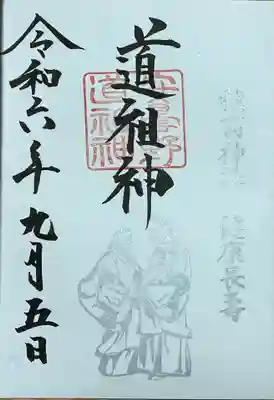 健康長寿
道祖神
道祖神
令和六年 九月五日